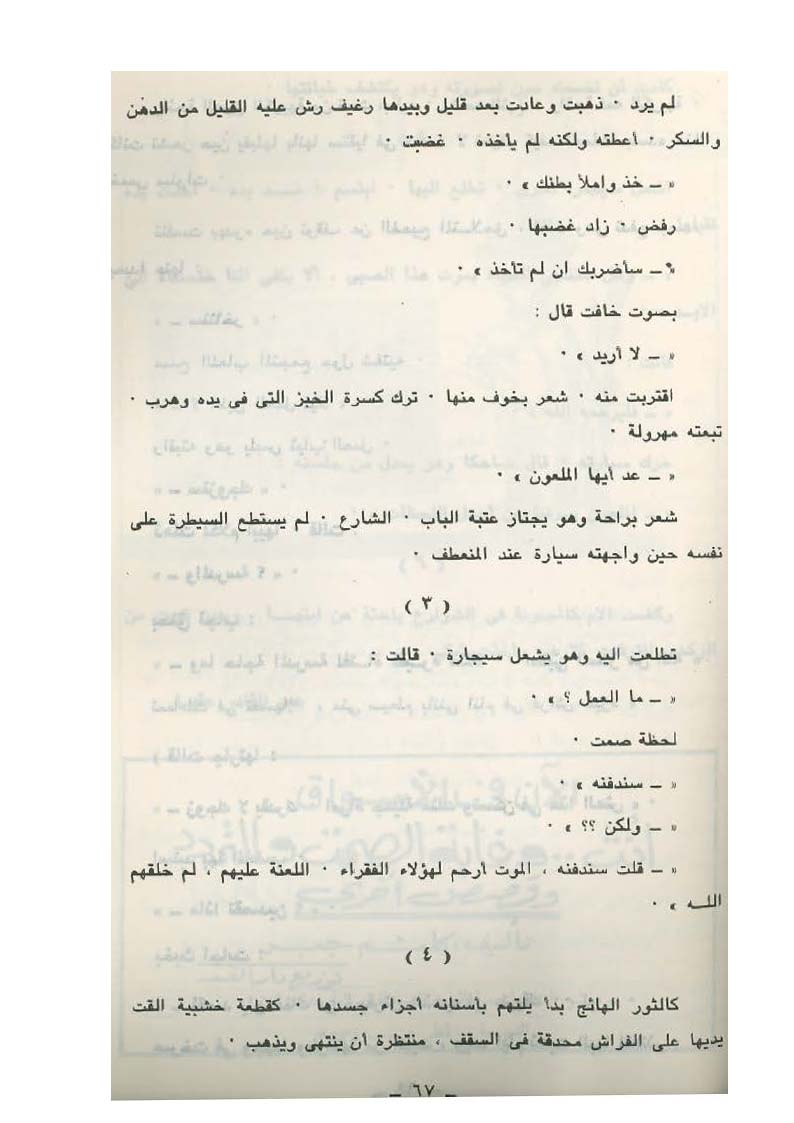 لم يرد ٠ ذهبت وعادت بعد قليل وبيدها رغيف رش عليه القليل من الدهن
والسكر ٠ أعطته ولكنه لم يأخذه ٠ غضبت ٠
« ــ خذ واملأ بطنك » ٠
رفض ٠ زاد غضبها ٠
« ــ سأضربك ان لم تأخذ » ٠
بصوت خافت قال :
« ــ لا أريد » ٠
اقتربت منه ٠ شعر بخوف منها ٠ ترك كسرة الخبز التى فى يده وهرب ٠
تبعته مهرولة ٠
« ــ عد أيها الملعون » ٠
شعر براحة وهو يجتاز عتبة الباب ٠ الشارع ٠ لم يستطع السيطرة على
نفسه حين واجهته سيارة عند المنعطف ٠
( ٣ )
تطلعت اليه وهو يشعل سيجارة ٠ قالت :
« ــ ما العمل ؟ » ٠
لحظة صمت ٠
« ــ سندفنه » ٠
« ــ ولكن ؟؟ » ٠
« ــ قلت سندفنه ، الموت أرحم لهؤلاء الفقراء ٠ اللعنة عليهم ، لم خلقهم
اللــه » ٠
( ٤ )
كالثور الهائج بدأ يلتهم بأسنانه أجزاء جسدها ٠ كقطعة خشبية القت
يديها على الفراش محدقة فى السقف ، منتظرة أن ينتهى ويذهب ٠
ــ ٦٧ ــ